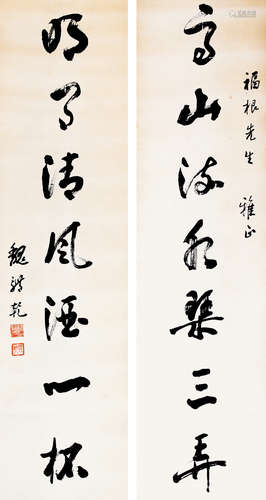 高山流水琴三弄
福根先生 雅正
明月清风酒一杯
魏鸿乾